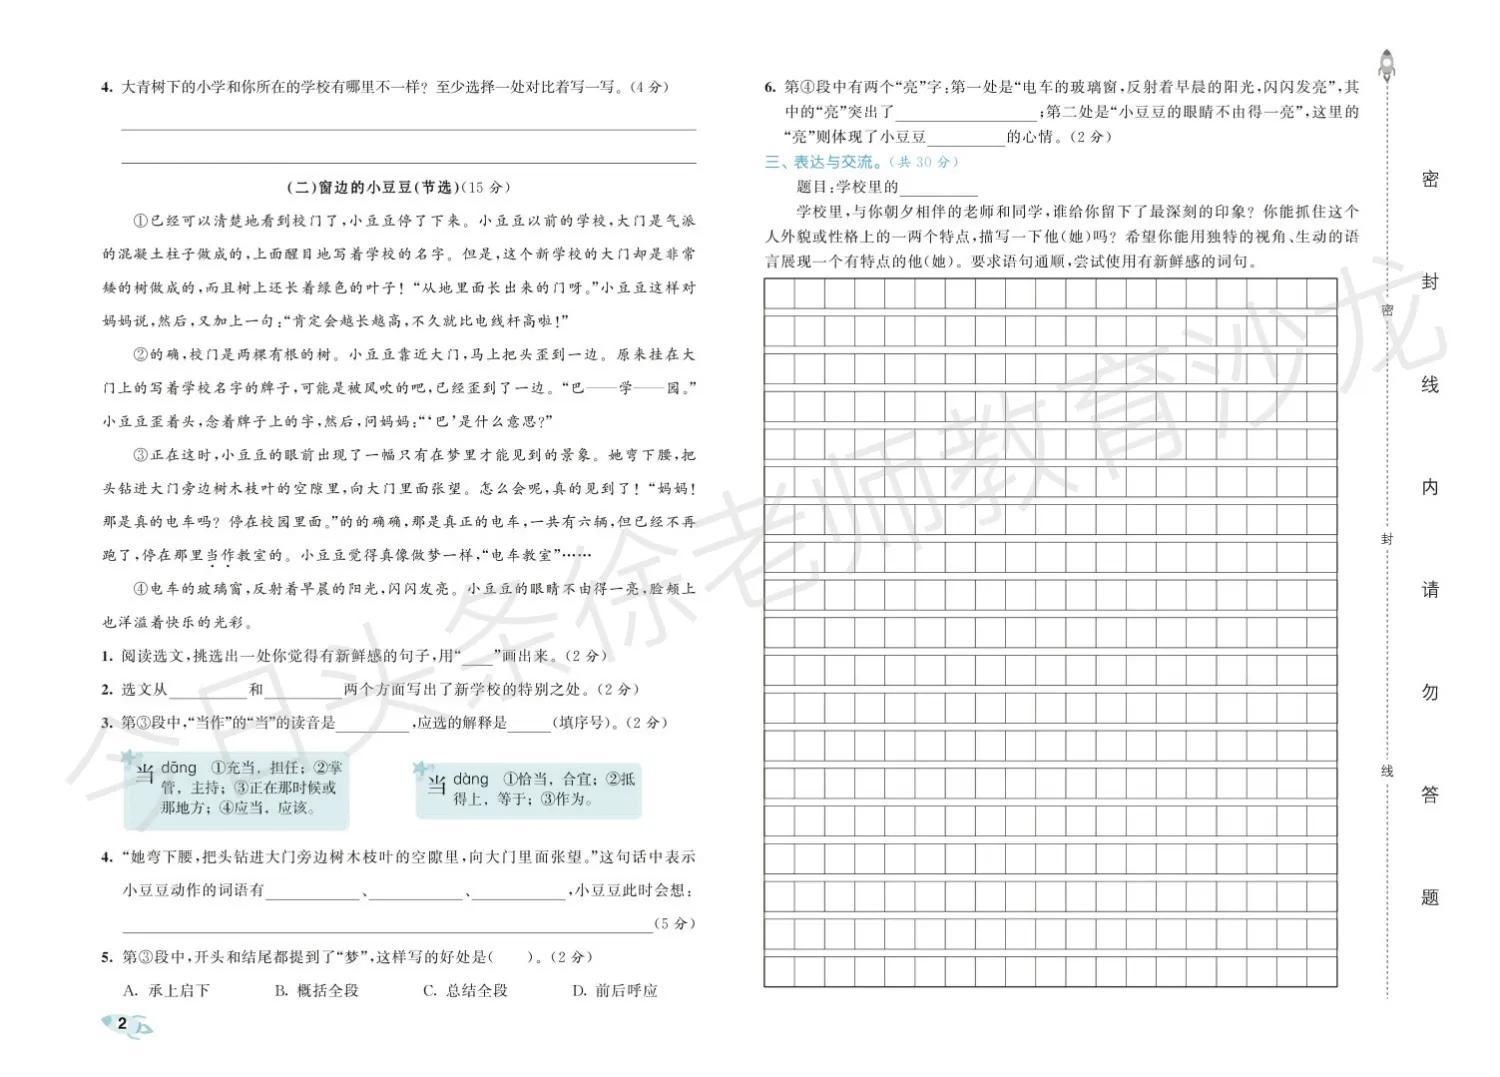 4. 大青树下的小学和你所在的学校有哪里不一样？至少选择一处对比着写一写。(4 分)
(二)窗边的小豆豆(节选)(15 分)
①已经可以清楚地看到校门了,小豆豆停了下来。小豆豆以前的学校,大门是气派
的混凝土柱子做成的,上面醒目地写着学校的名字。但是,这个新学校的大门却是非常
矮的树做成的,而且树上还长着绿色的叶子！“从地里面长出来的门呀。”小豆豆这样对
妈妈说,然后,又加上一句:“肯定会越长越高,不久就比电线杆高啦！”
②的确,校门是两棵有根的树。小豆豆靠近大门,马上把头歪到一边。原来挂在大
门上的写着学校名字的牌子,可能是被风吹的吧,已经歪到了一边。“巴——学——园。”
小豆豆歪着头,念着牌子上的字,然后,问妈妈:“‘巴’是什么意思?”
③正在这时,小豆豆的眼前出现了一幅只有在梦里才能见到的景象。她弯下腰,把
头钻进大门旁边树木枝叶的空隙里,向大门里面张望。怎么会呢,真的见到了！“妈妈！
那是真的电车吗？停在校园里面。”的的确确,那是真正的电车,一共有六辆,但已经不再
跑了,停在那里当作教室的。小豆豆觉得真像做梦一样,“电车教室”……
④电车的玻璃窗,反射着早晨的阳光,闪闪发亮。小豆豆的眼睛不由得一亮,脸颊上
也洋溢着快乐的光彩。
1. 阅读选文,挑选出一处你觉得有新鲜感的句子,用“____”画出来。(2 分)
2. 选文从________和________两个方面写出了新学校的特别之处。(2 分)
3. 第③段中,“当作”的“当”的读音是________,应选的解释是____(填序号)。(2 分)
当 dāng ①充当，担任；②掌
管，主持；③正在那时候或
那地方；④应当，应该。
当 dàng ①恰当，合宜；②抵
得上，等于；③作为。
4. “她弯下腰,把头钻进大门旁边树木枝叶的空隙里,向大门里面张望。”这句话中表示
小豆豆动作的词语有________、________、________,小豆豆此时会想:
________(5 分)
5. 第③段中,开头和结尾都提到了“梦”,这样写的好处是(    )。(2 分)
A. 承上启下 B. 概括全段 C. 总结全段 D. 前后呼应
2
6. 第④段中有两个“亮”字:第一处是“电车的玻璃窗,反射着早晨的阳光,闪闪发亮”,其
中的“亮”突出了________;第二处是“小豆豆的眼睛不由得一亮”,这里的
“亮”则体现了小豆豆________的心情。(2 分)
三、表达与交流。(共 30 分)
题目:学校里的________
学校里,与你朝夕相伴的老师和同学,谁给你留下了最深刻的印象？你能抓住这个
人外貌或性格上的一两个特点,描写一下他(她)吗？希望你能用独特的视角、生动的语
言展现一个有特点的他(她)。要求语句通顺,尝试使用有新鲜感的词句。
密
封
线
密
封
线
内
请
勿
答
题
今日头条徐老师教育沙龙